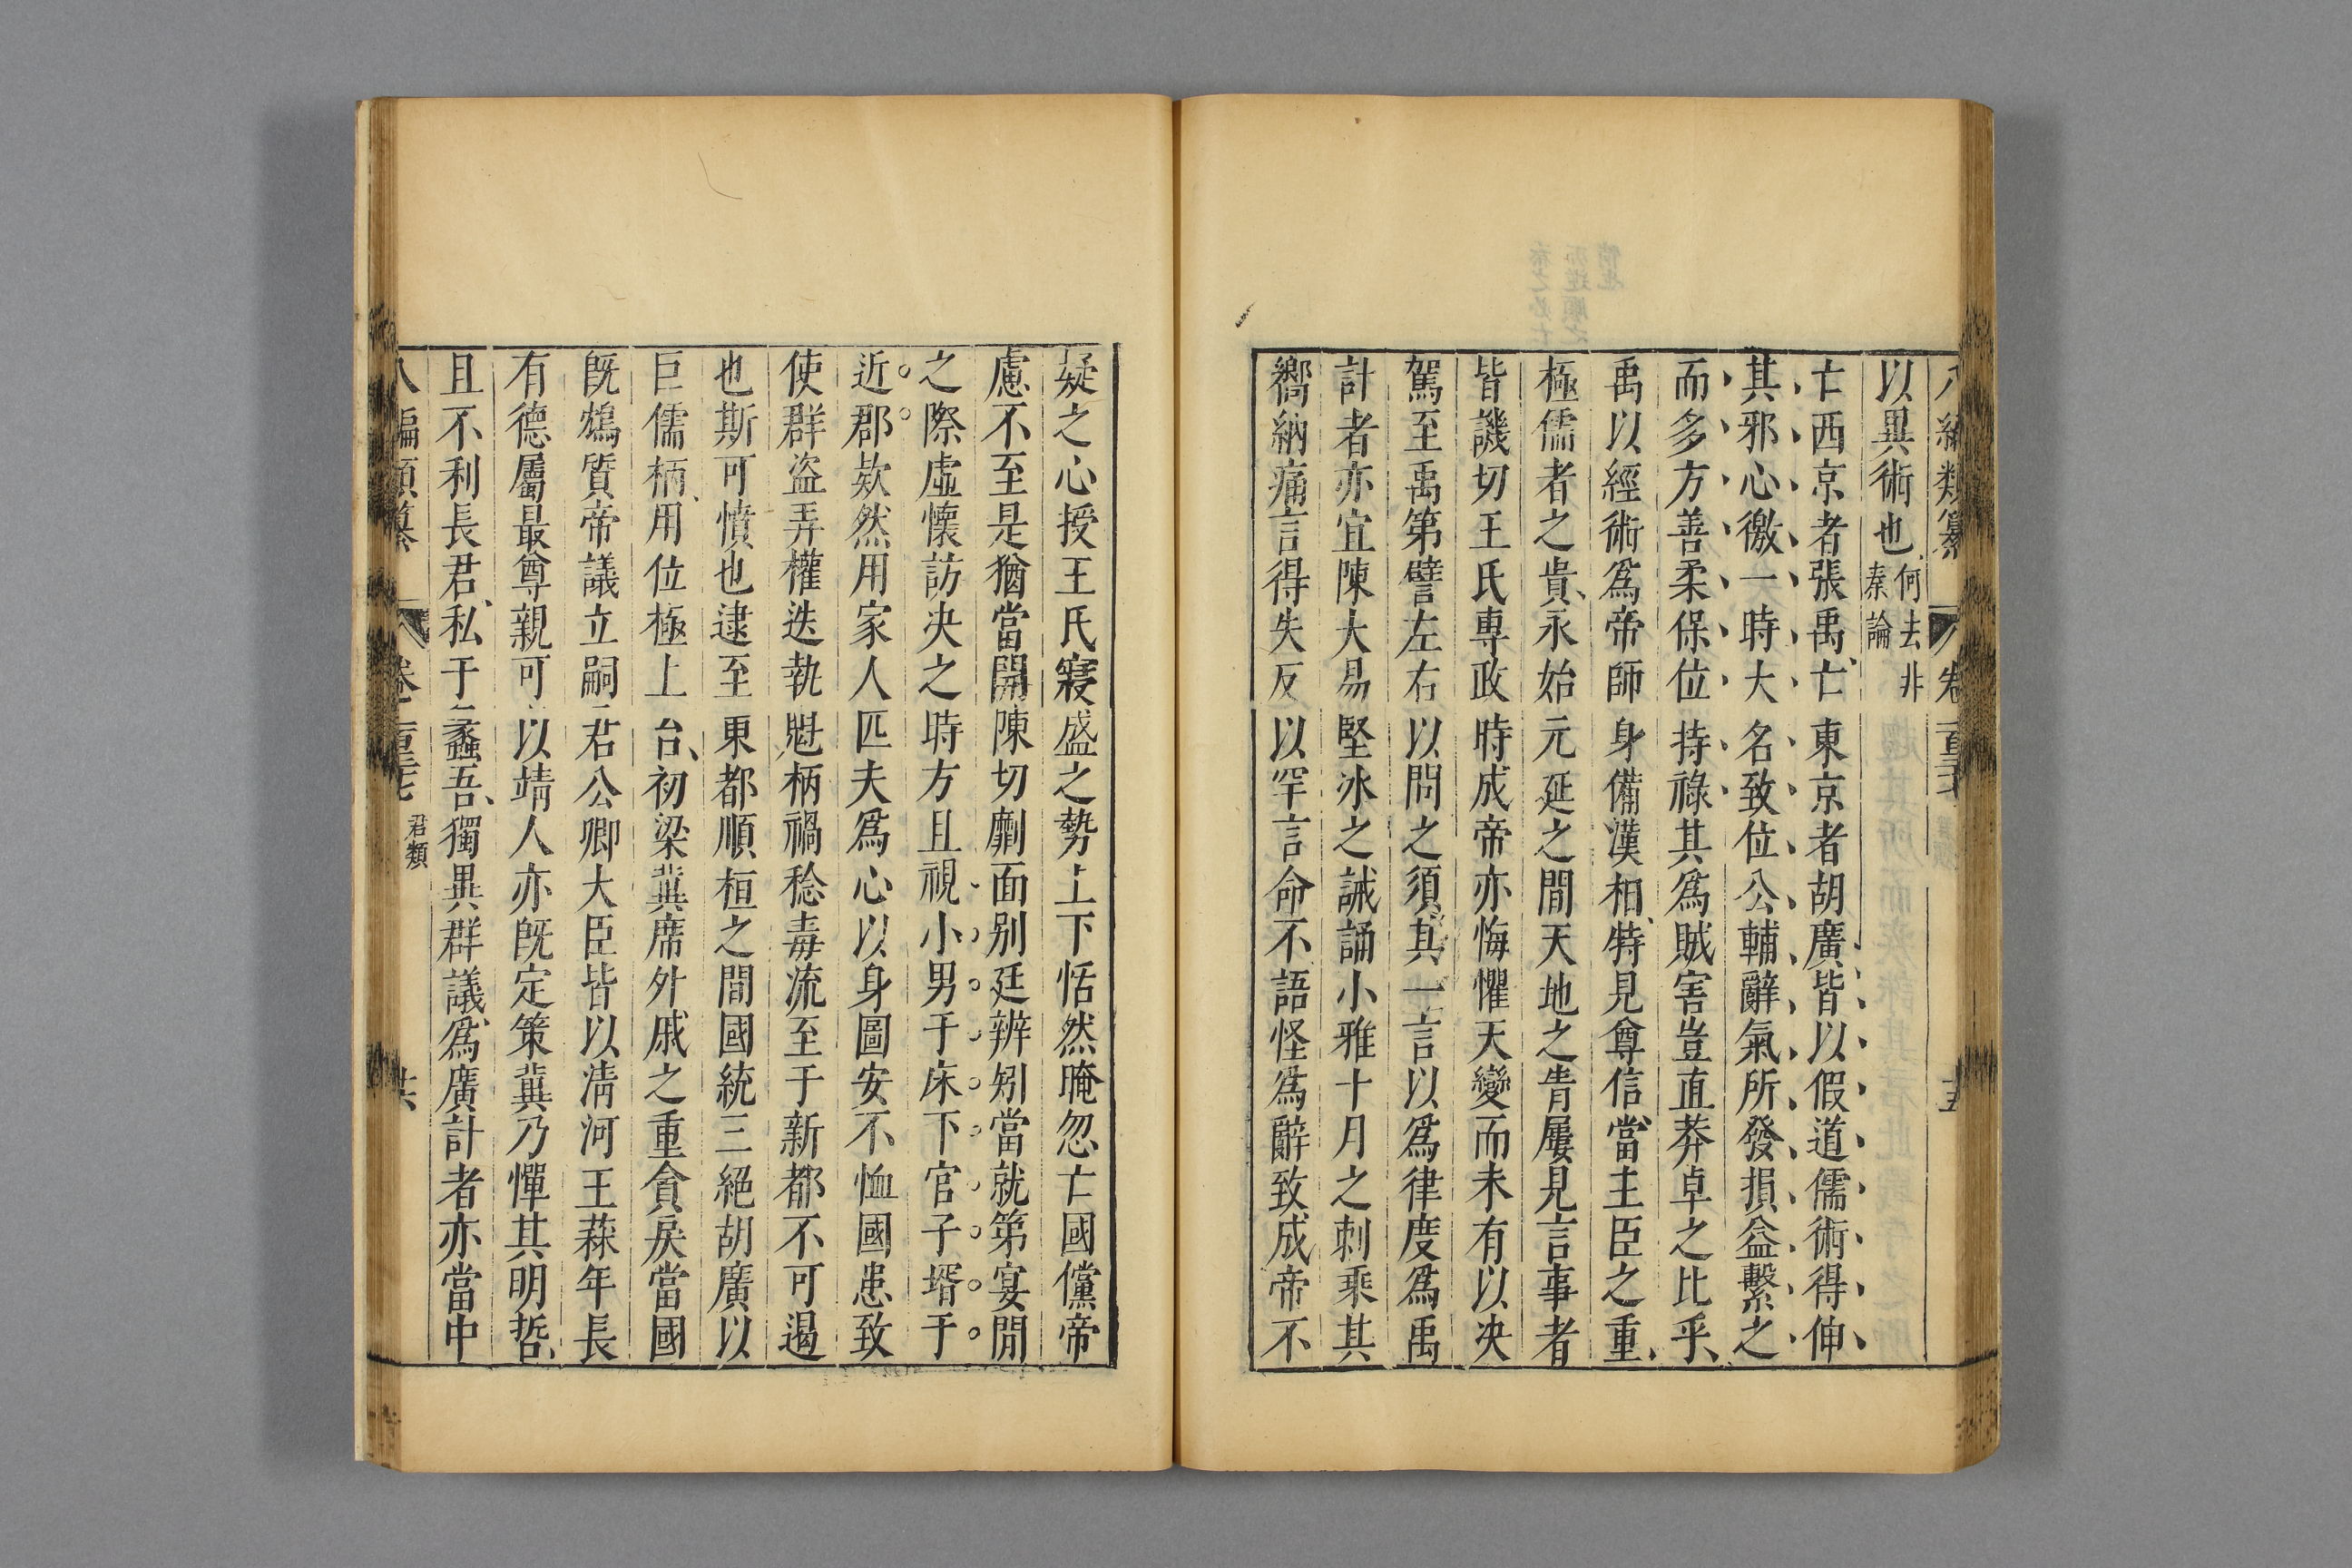 編類纂 卷一百三十七 十五
以異術也何去非秦論
亡西京者張禹亡東京者胡廣皆以假道儒術得伸
其邪心徼一時大名致位公輔辭氣所發損益繫之
而多方善柔保位持祿其為賊害豈直莽卓之比乎
禹以經術為帝師身備漢相特見尊信當主臣之重
極儒者之貴永始元延之間天地之眚屢見言事者
皆譏切王氏專政時成帝亦悔懼天變而未有以决
駕至禹第辟左右以問之須其一言以為律度為禹
計者亦宜陳大易堅氷之誡誦小雅十月之刺乘其
嚮納痛言得失反以罕言命不語怪為辭致成帝不
疑之心授王氏寖盛之勢上下恬然晻忽亡國儻帝
慮不至是猶當開陳切劘面別廷辨矧當就第宴閒
之際虛懷訪决之時方且視小男于床下官子壻于
近郡欵然用家人匹夫為心以身圖安不恤國患致
使群盗弄權迭執魁柄禍稔毒流至于新都不可遏
也斯可憤也逮至東都順桓之間國統三絕胡廣以
巨儒柄用位極上台初梁冀席外戚之重貪戾當國
旣鴆質帝議立嗣君公卿大臣皆以淸河王蒜年長
有德屬最尊親可以靖人亦旣定策冀乃憚其明哲
且不利長君私于蠡吾獨異群議為廣計者亦當中
八編類纂 卷一百三十七 君類 十六